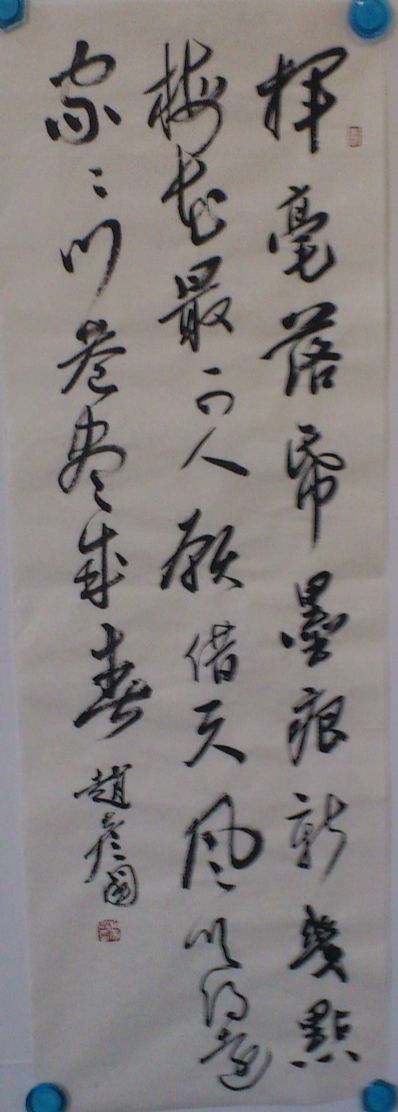 揮毫落帋墨痕新幾點
梅花最可人願借天風吹得遠
家〻門巷盡成春
趙彥國